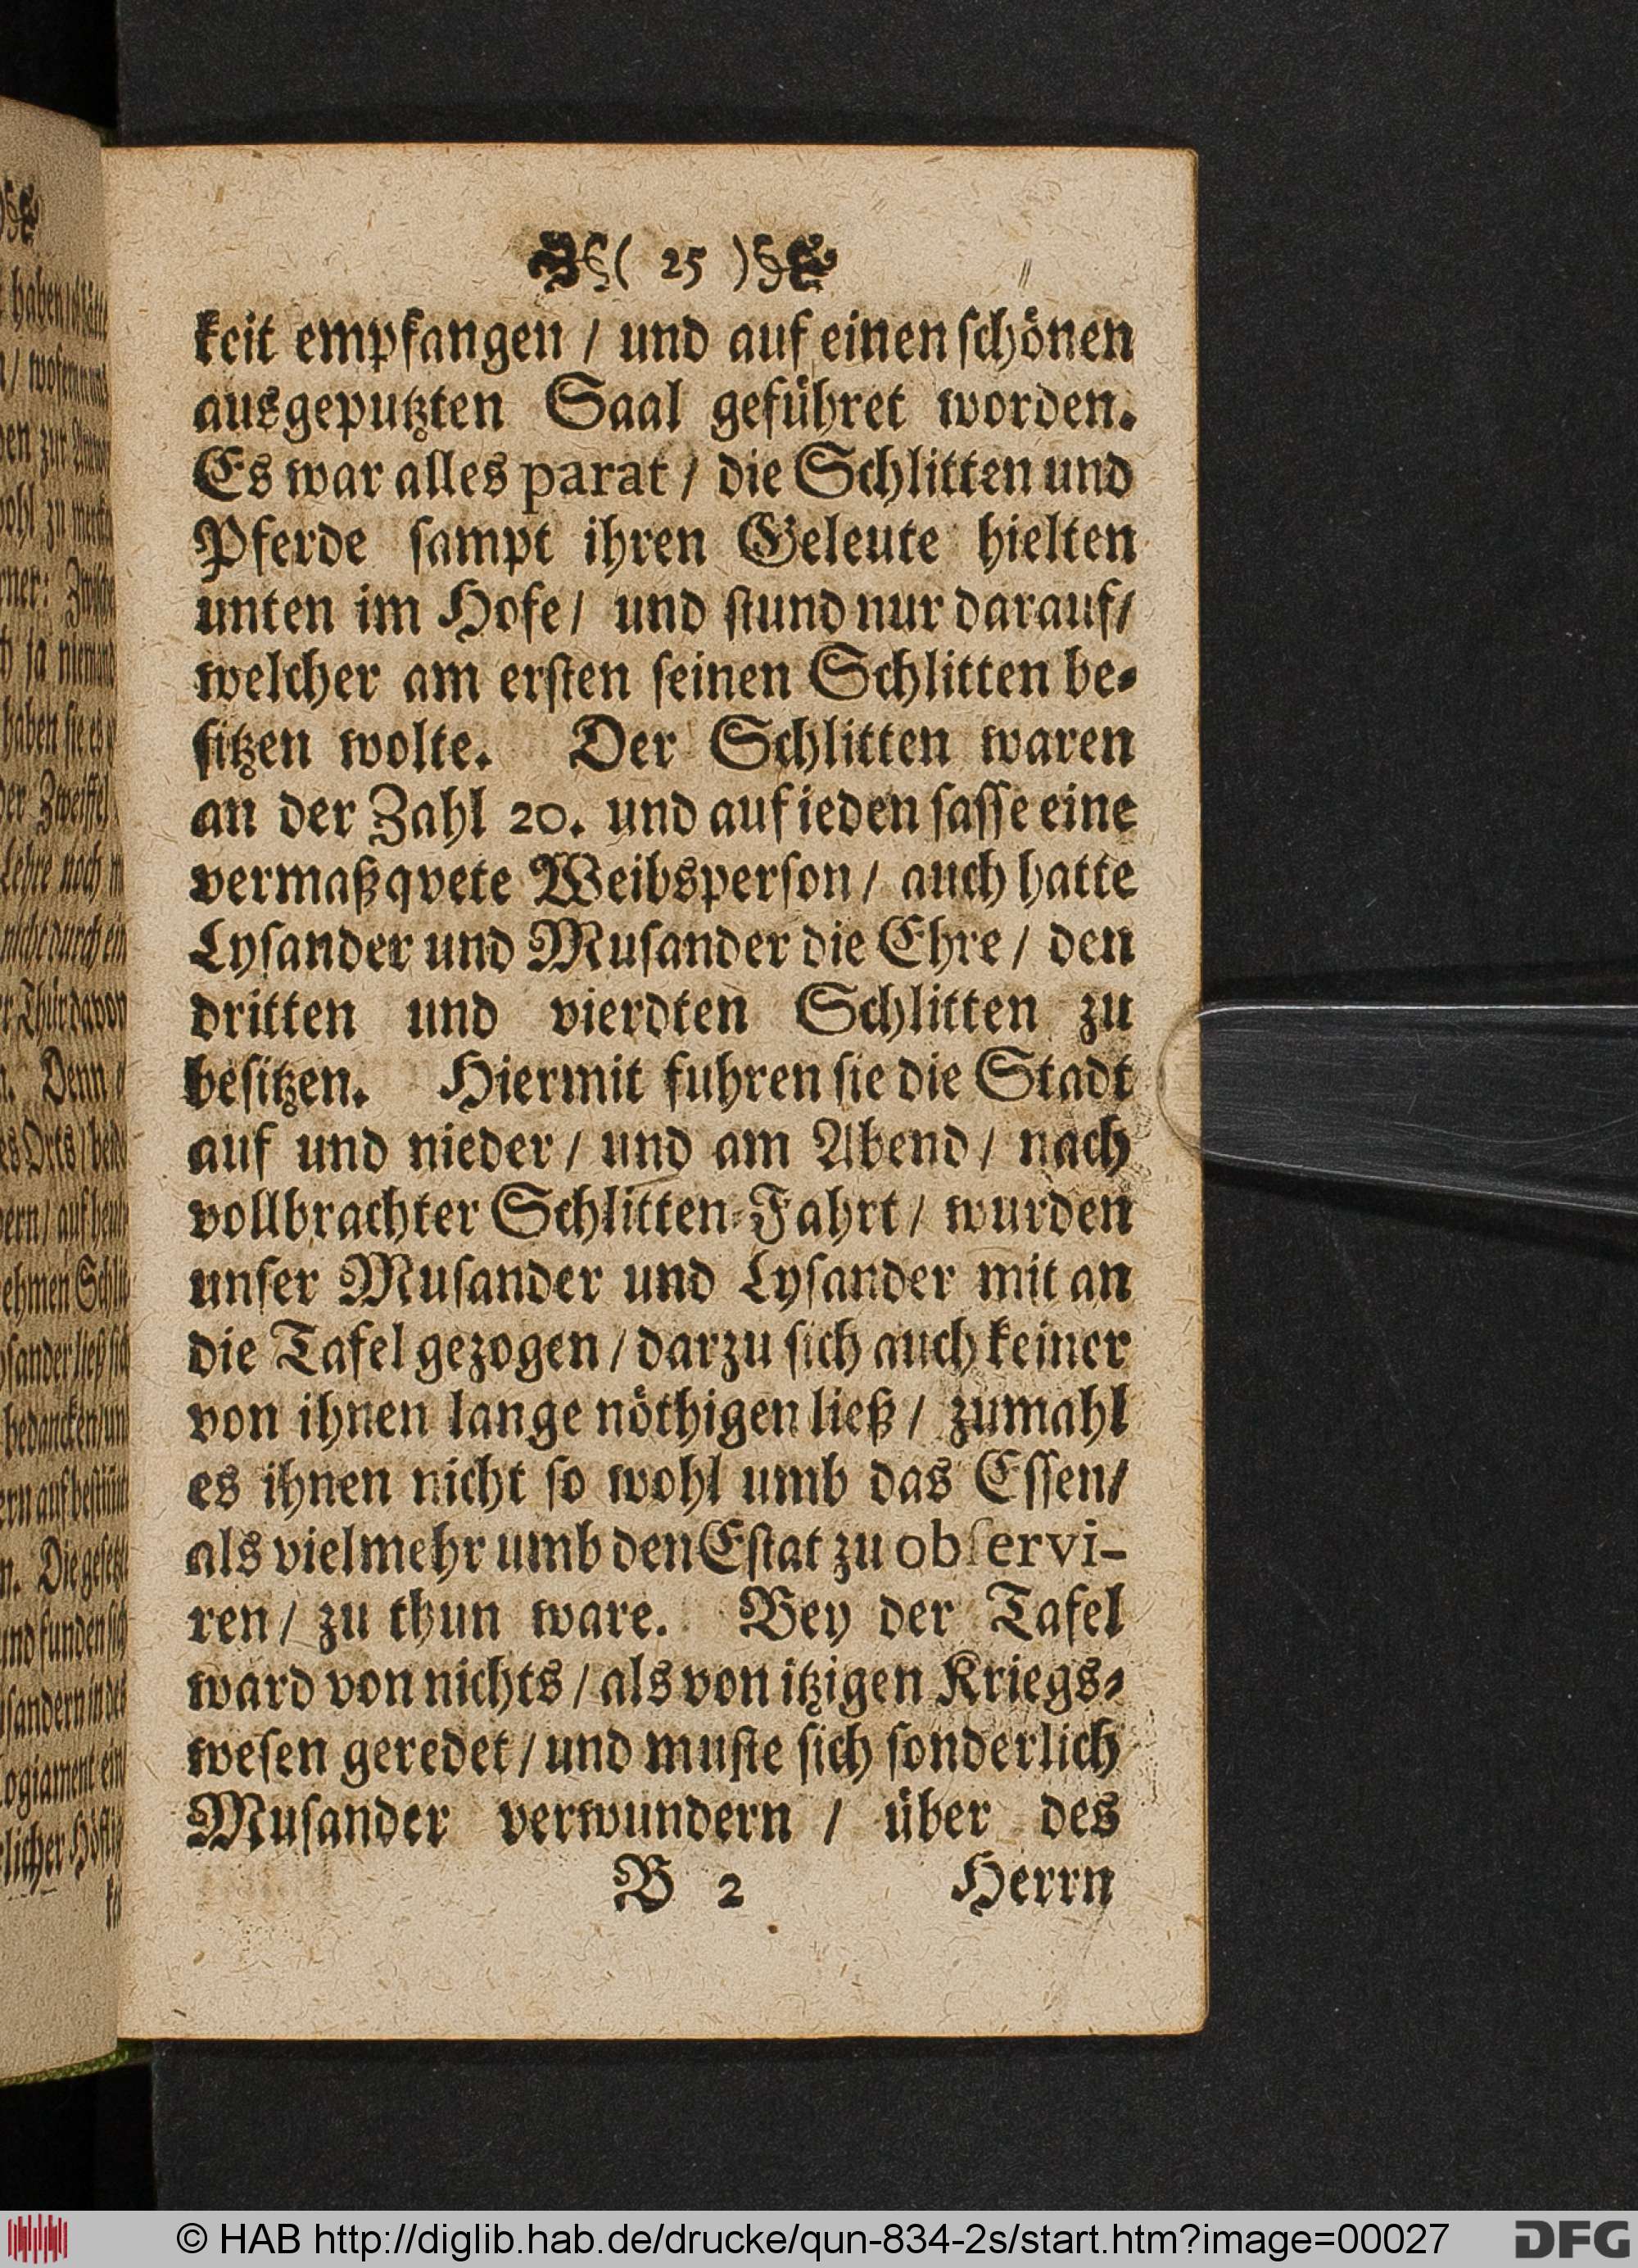 ( 25 )
keit empfangen / und auf einen schönen
ausgeputzten Saal geführet worden.
Es war alles parat / die Schlitten und
Pferde sampt ihren Geleute hielten
unten im Hofe / und stund nur darauf /
welcher am ersten seinen Schlitten be-
sitzen wolte. Der Schlitten waren
an der Zahl 20. und auf ieden sasse eine
vermaßqvete Weibsperson / auch hatte
Lysander und Musander die Ehre / den
dritten und vierdten Schlitten zu
besitzen. Hiermit fuhren sie die Stadt
auf und nieder / und am Abend / nach
vollbrachter Schlitten-Fahrt / wurden
unser Musander und Lysander mit an
die Tafel gezogen / darzu sich auch keiner
von ihnen lange nöthigen ließ / zumahl
es ihnen nicht so wohl umb das Essen /
als vielmehr umb den Estat zu observi-
ren / zu thun ware. Bey der Tafel
ward von nichts / als von itzigen Kriegs-
wesen geredet / und muste sich sonderlich
Musander verwundern / über des
B 2 Herrn
© HAB http://diglib.hab.de/drucke/qun-834-2s/start.htm?image=00027
DFG